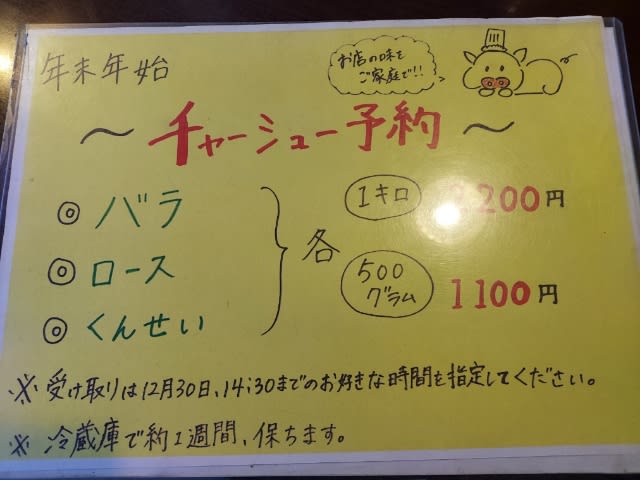 年末年始
お店の味を
ご家庭で!!
～チャーシュー予約～
◎バラ
◎ロース
◎くんせい
各
1キロ 2200円
500グラム 1100円
※受け取りは12月30日、14:30までのお好きな時間を指定してください。
※冷蔵庫で約1週間、保ちます。